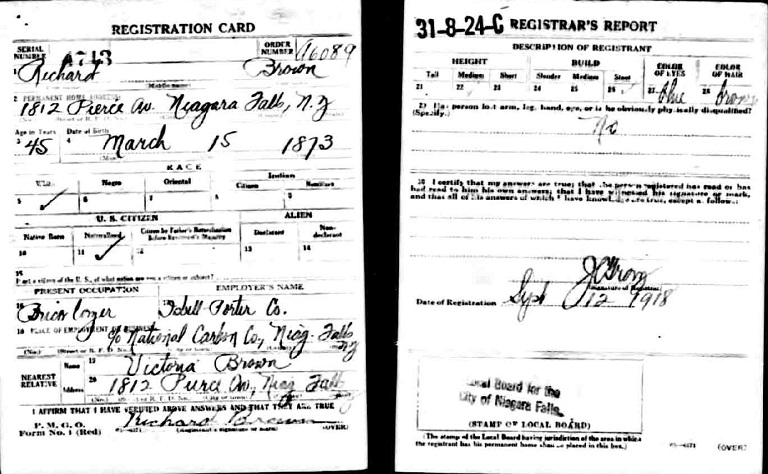 REGISTRATION CARD
SERIAL NUMBER
ORDER NUMBER A6089
1 Richard Brown
(Middle name)
2 PERMANENT HOME ADDRESS:
1812 Pierce Av. Niagara Falls, N.Y
Age in Years Date of Birth
3 45 4 March 15 1873
RACE
White Negro Oriental Indian
Citizen Noncitizen
5 ✓ 6 7 8 9
U. S. CITIZEN ALIEN
Native Born Naturalized Citizen by Father's Naturalization Before Registrant's Majority Declarant Non-declarant
10 11 ✓ 12 13 14
15
If not a citizen of the U. S., of what nation are you a citizen or subject?
PRESENT OCCUPATION EMPLOYER'S NAME
Porter Co.
18 PLACE OF EMPLOYMENT OR BUSINESS:
% National Carbon Co, Niag. Falls
NY
NEAREST RELATIVE
Name 19 Victoria Brown
Address 20 1812 Pierce Av, Niag Falls
I AFFIRM THAT I HAVE VERIFIED ABOVE ANSWERS AND THAT THEY ARE TRUE
P. M. G. O.
Form No. 1 (Red)
Richard Brown
(Registrant's signature or mark)
(OVER)
31-8-24-C REGISTRAR'S REPORT
DESCRIPTION OF REGISTRANT
HEIGHT BUILD COLOR OF EYES COLOR OF HAIR
Tall Medium Short Slender Medium Stout
21 22 23 24 25 26 27 Blue 28 Brown
29 Has person lost arm, leg, hand, eye, or is he obviously physically disqualified?
(Specify.)
No
30 I certify that my answers are true; that the person registered has read or has
had read to him his own answers; that I have witnessed his signature or mark,
and that all of his answers of which I have knowledge are true, except as follows:
(Signature of Registrar)
Date of Registration Sept 12 1918
Local Board for the
City of Niagara Falls.
(STAMP OF LOCAL BOARD)
(The stamp of the Local Board having jurisdiction of the area in which
the registrant has his permanent home shall be placed in this box.)
(OVER)